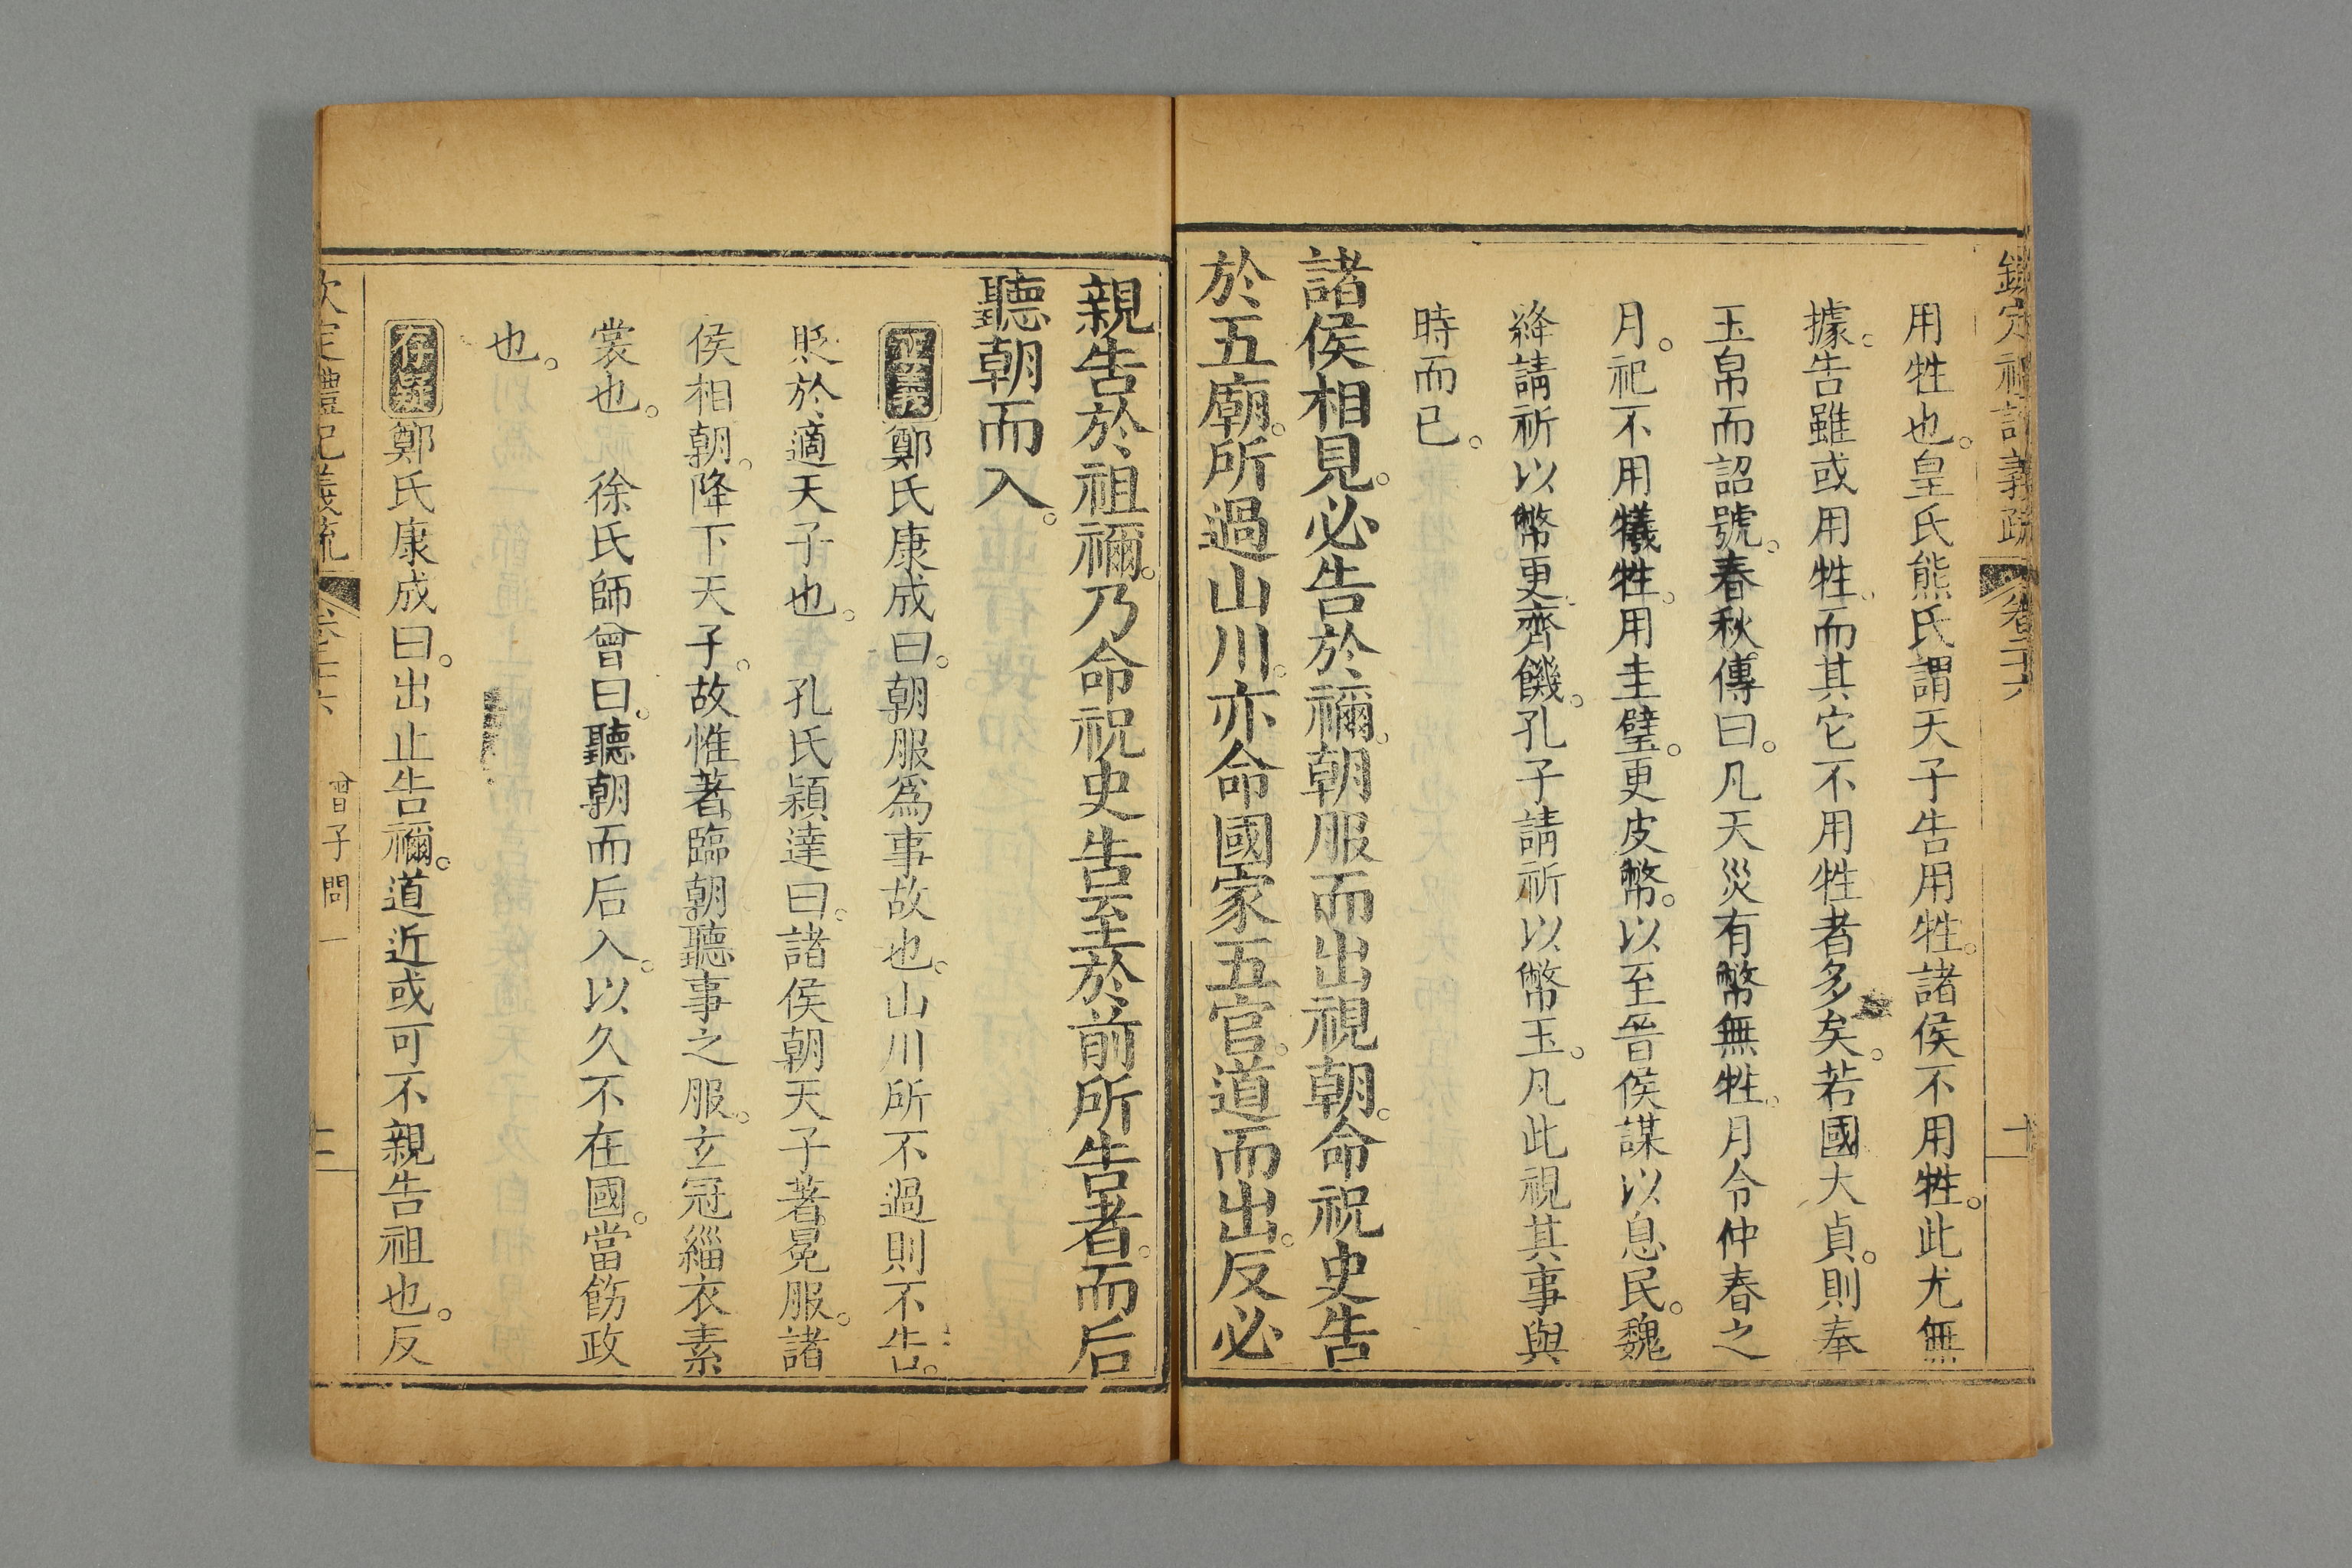 用牲也。皇氏熊氏謂天子告用牲。諸侯不用牲。此尤無
據。告雖或用牲。而其它不用牲者多矣。若國大貞。則奉
玉帛而詔號。春秋傳曰。凡天災有幣無牲。月令仲春之
月。祀不用犧牲。用圭璧。更皮幣。以至晉侯謀以息民。魏
絳請祈以幣更。齊饑。孔子請祈以幣玉。凡此視其事與
時而已。
諸侯相見。必告於禰。朝服而出視朝。命祝史告
於五廟。所過山川。亦命國家五官。道而出。反必
親告於祖禰。乃命祝史告至於前所告者。而后
聽朝而入。
正義鄭氏康成曰。朝服爲事故也。山川所不過則不告。
貶於適天子也。 孔氏穎達曰。諸侯朝天子著冕服。諸
侯相朝。降下天子。故惟著臨朝聽事之服。玄冠緇衣素
裳也。 徐氏師曾曰。聽朝而后入。以久不在國。當飭政
也。
存疑鄭氏康成曰。出止告禰。道近或可不親告祖也。反
欽定禮記義疏 卷二十六 曾子問一